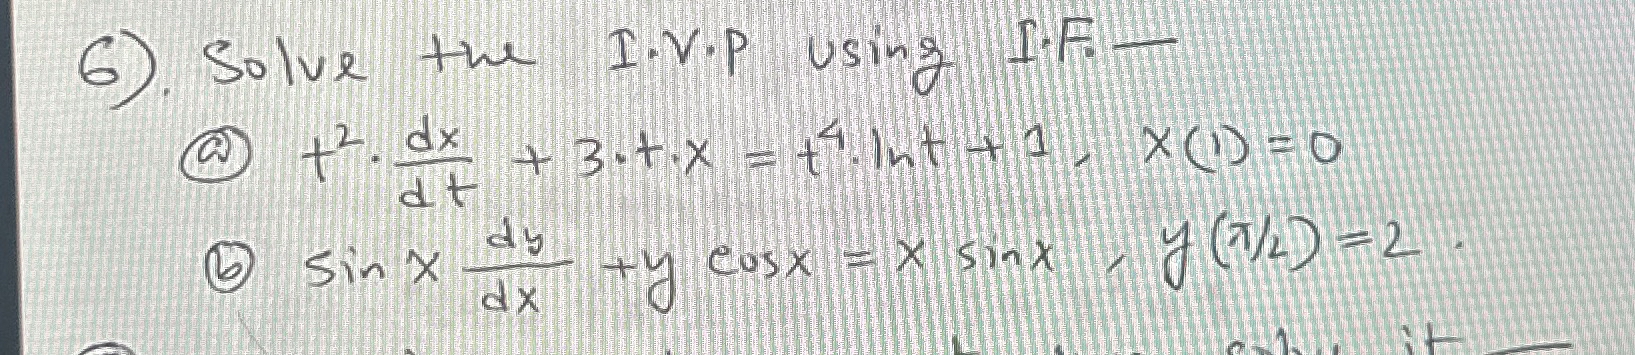 6). Solve the I.V.P using I.F. —
(a) t². dx/dt + 3.t.x = t⁴.lnt + 1, x(1) = 0
(b) sin x dy/dx + y cosx = x sinx, y(π/2) = 2.
it —